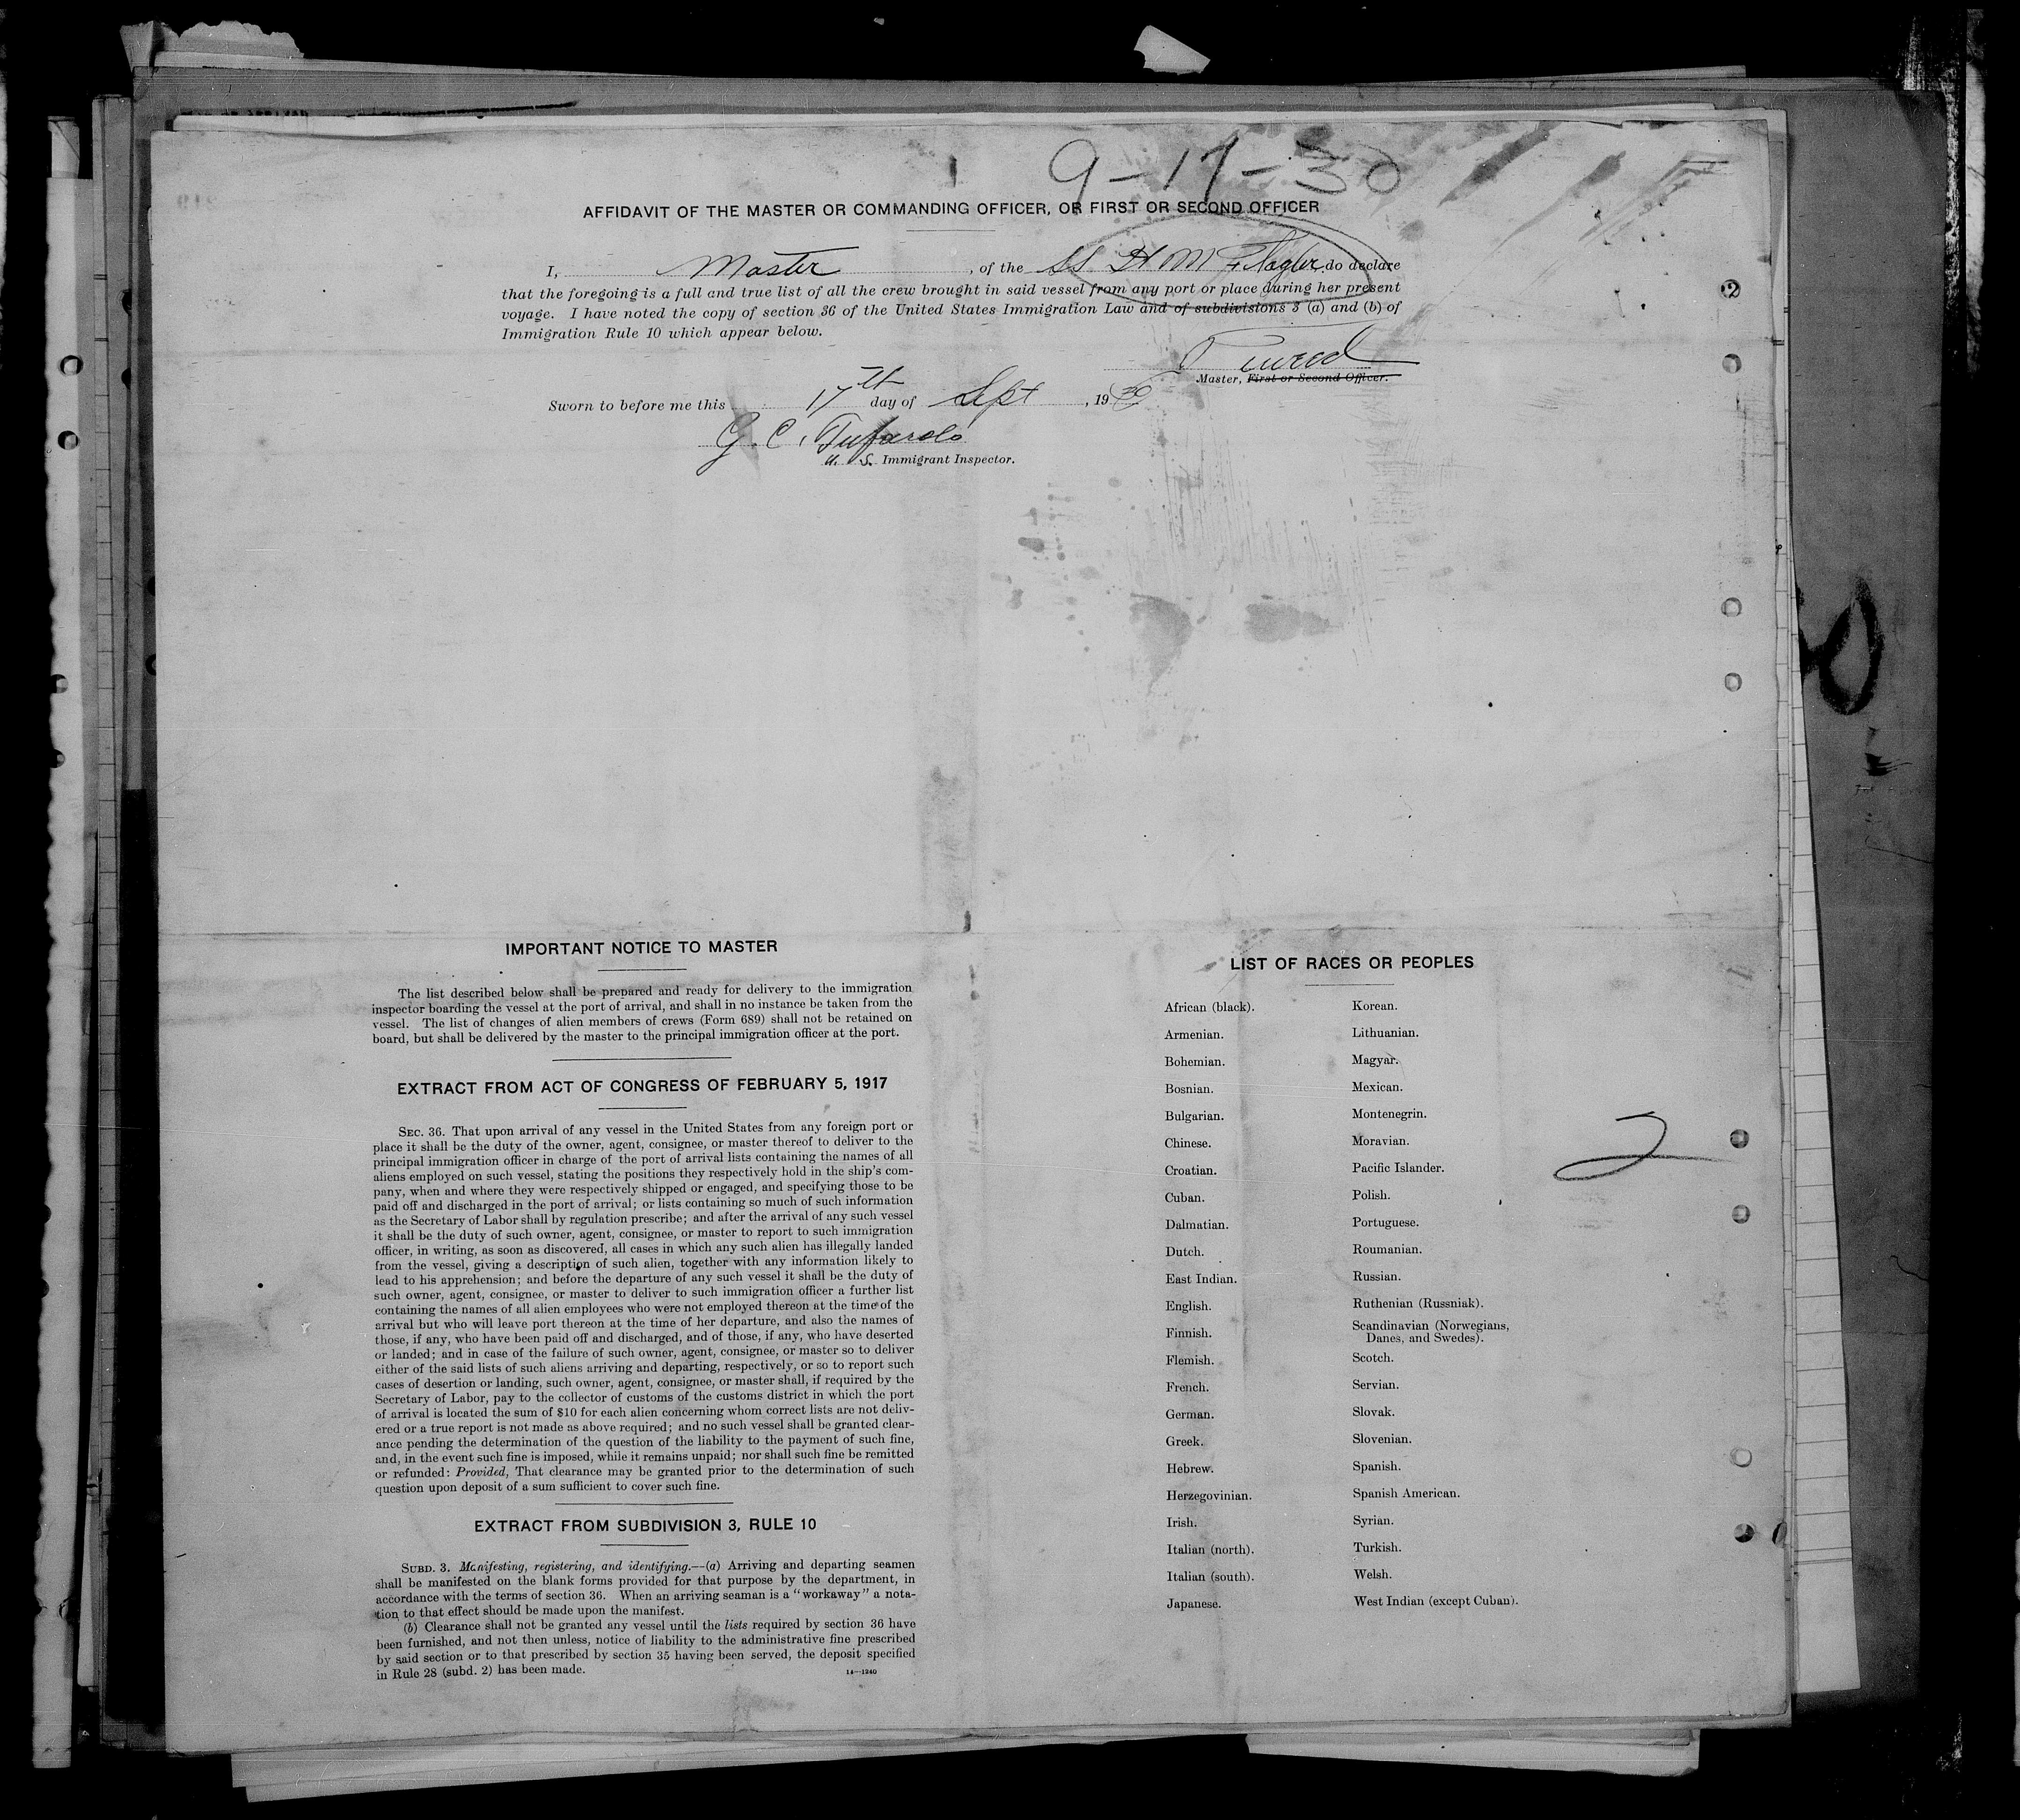 9-17-30
AFFIDAVIT OF THE MASTER OR COMMANDING OFFICER, OR FIRST OR SECOND OFFICER
I, Master, of the SS H M Flagler do declare
that the foregoing is a full and true list of all the crew brought in said vessel from any port or place during her present
voyage. I have noted the copy of section 36 of the United States Immigration Law and of subdivisions 3 (a) and (b) of
Immigration Rule 10 which appear below.
Master, First or Second Officer.
Sworn to before me this 17th day of Sept, 1930
G. C.
U. S. Immigrant Inspector.
IMPORTANT NOTICE TO MASTER
The list described below shall be prepared and ready for delivery to the immigration
inspector boarding the vessel at the port of arrival, and shall in no instance be taken from the
vessel. The list of changes of alien members of crews (Form 689) shall not be retained on
board, but shall be delivered by the master to the principal immigration officer at the port.
EXTRACT FROM ACT OF CONGRESS OF FEBRUARY 5, 1917
SEC. 36. That upon arrival of any vessel in the United States from any foreign port or
place it shall be the duty of the owner, agent, consignee, or master thereof to deliver to the
principal immigration officer in charge of the port of arrival lists containing the names of all
aliens employed on such vessel, stating the positions they respectively hold in the ship's com-
pany, when and where they were respectively shipped or engaged, and specifying those to be
paid off and discharged in the port of arrival; or lists containing so much of such information
as the Secretary of Labor shall by regulation prescribe; and after the arrival of any such vessel
it shall be the duty of such owner, agent, consignee, or master to report to such immigration
officer, in writing, as soon as discovered, all cases in which any such alien has illegally landed
from the vessel, giving a description of such alien, together with any information likely to
lead to his apprehension; and before the departure of any such vessel it shall be the duty of
such owner, agent, consignee, or master to deliver to such immigration officer a further list
containing the names of all alien employees who were not employed thereon at the time of the
arrival but who will leave port thereon at the time of her departure, and also the names of
those, if any, who have been paid off and discharged, and of those, if any, who have deserted
or landed; and in case of the failure of such owner, agent, consignee, or master so to deliver
either of the said lists of such aliens arriving and departing, respectively, or so to report such
cases of desertion or landing, such owner, agent, consignee, or master shall, if required by the
Secretary of Labor, pay to the collector of customs of the customs district in which the port
of arrival is located the sum of $10 for each alien concerning whom correct lists are not deliv-
ered or a true report is not made as above required; and no such vessel shall be granted clear-
ance pending the determination of the question of the liability to the payment of such fine,
and, in the event such fine is imposed, while it remains unpaid; nor shall such fine be remitted
or refunded: Provided, That clearance may be granted prior to the determination of such
question upon deposit of a sum sufficient to cover such fine.
EXTRACT FROM SUBDIVISION 3, RULE 10
SUBD. 3. Manifesting, registering, and identifying.—(a) Arriving and departing seamen
shall be manifested on the blank forms provided for that purpose by the department, in
accordance with the terms of section 36. When an arriving seaman is a "workaway" a nota-
tion to that effect should be made upon the manifest.
(b) Clearance shall not be granted any vessel until the lists required by section 36 have
been furnished, and not then unless, notice of liability to the administrative fine prescribed
by said section or to that prescribed by section 35 having been served, the deposit specified
in Rule 28 (subd. 2) has been made.
14—1240
LIST OF RACES OR PEOPLES
African (black).
Armenian.
Bohemian.
Bosnian.
Bulgarian.
Chinese.
Croatian.
Cuban.
Dalmatian.
Dutch.
East Indian.
English.
Finnish.
Flemish.
French.
German.
Greek.
Hebrew.
Herzegovinian.
Irish.
Italian (north).
Italian (south).
Japanese.
Korean.
Lithuanian.
Magyar.
Mexican.
Montenegrin.
Moravian.
Pacific Islander.
Polish.
Portuguese.
Roumanian.
Russian.
Ruthenian (Russniak).
Scandinavian (Norwegians,
Danes, and Swedes).
Scotch.
Servian.
Slovak.
Slovenian.
Spanish.
Spanish American.
Syrian.
Turkish.
Welsh.
West Indian (except Cuban).
2